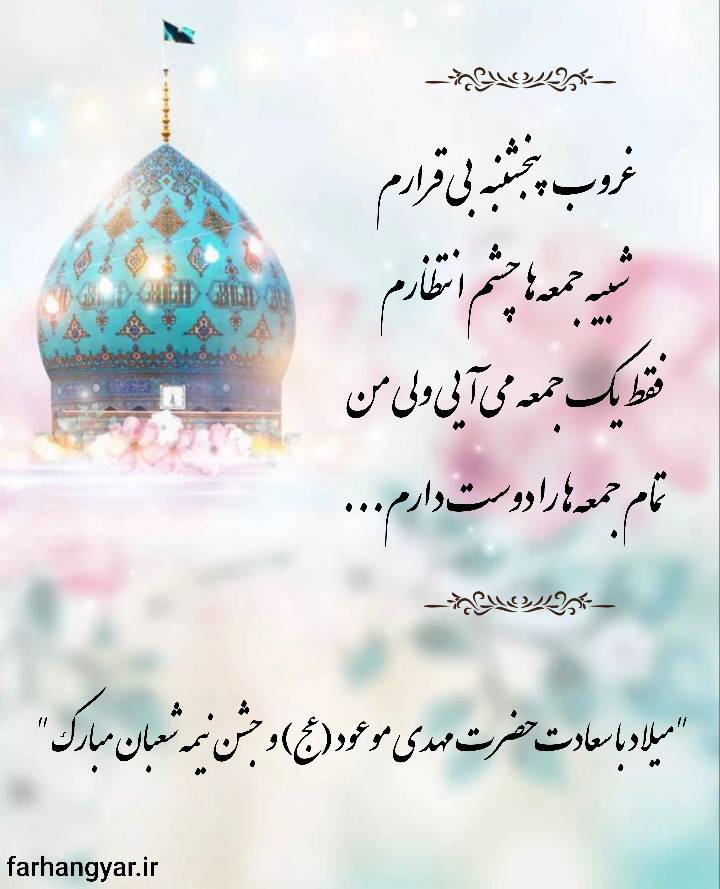 غروب پنجشنبه بی قرارم
شبیه جمعه ها چشم انتظارم
فقط یک جمعه می آیی ولی من
تمام جمعه ها را دوست دارم...
"میلاد با سعادت حضرت مهدی موعود (عج) و جشن نیمه شعبان مبارک"
farhangyar.ir